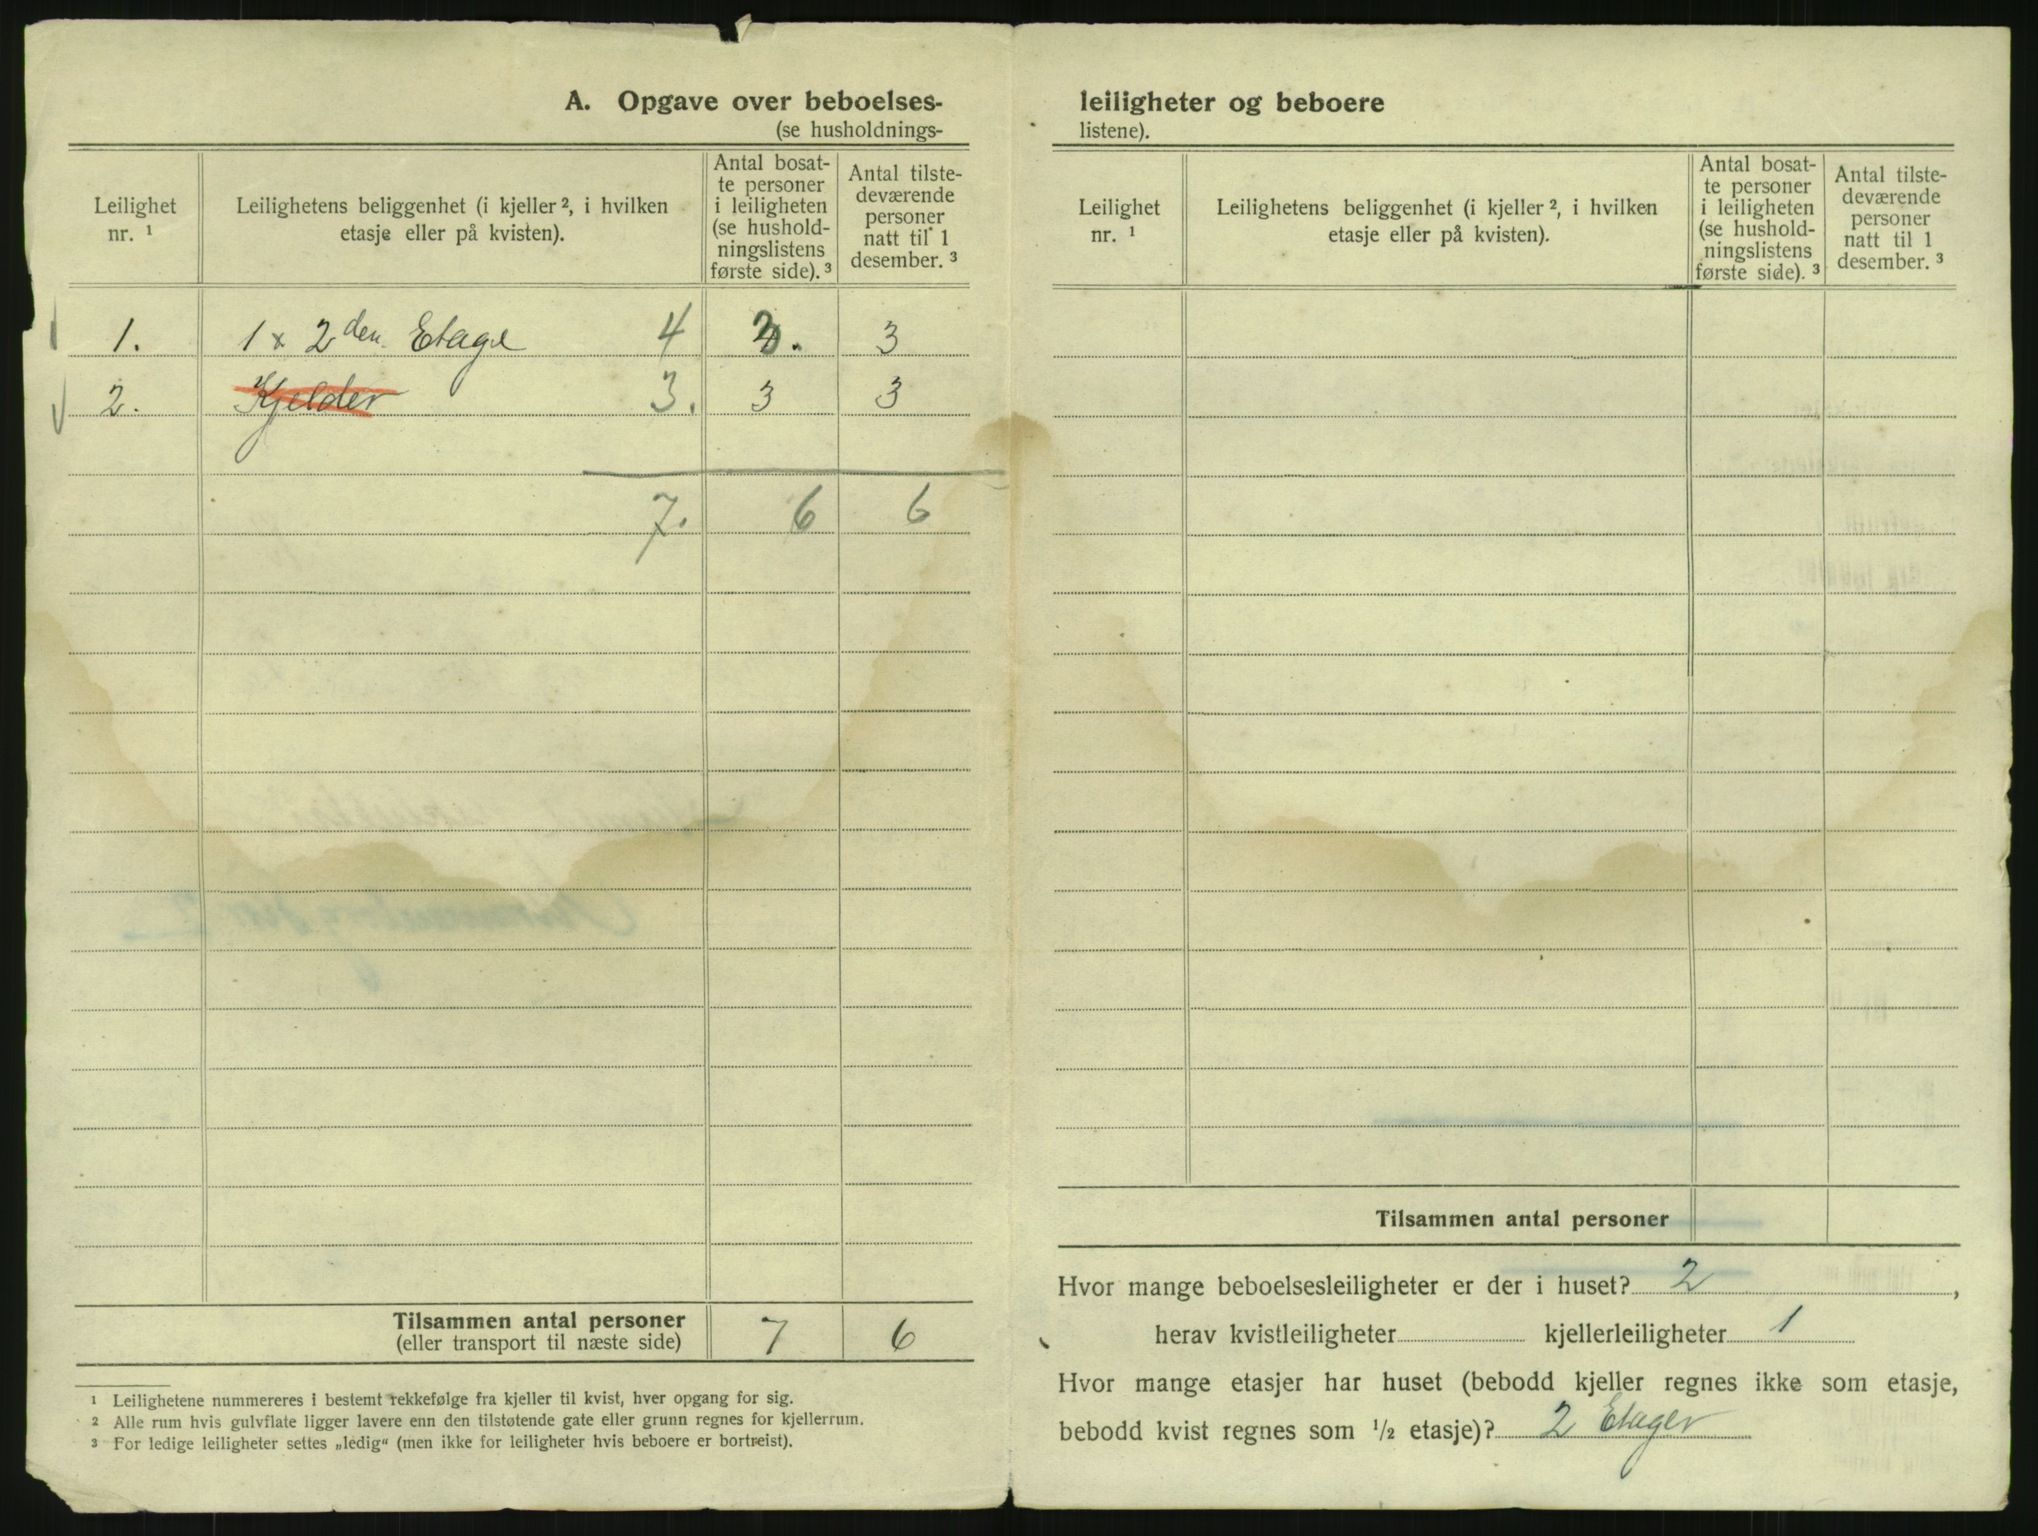 A. Opgave over beboelses-
(se husholdnings-
Leilighet nr. ¹
Leilighetens beliggenhet (i kjeller ², i hvilken etasje eller på kvisten).
Antal bosat-
te personer
i leiligheten
(se hushold-
ningslistens
første side). ³
Antal tilste-
deværende
personer
natt til 1
desember. ³
1. 1 x 2den Etage 4 3. 3
2. Kjelder 3. 3 3
7. 6 6
Tilsammen antal personer 7 6
(eller transport til næste side)
¹ Leilighetene nummereres i bestemt rekkefølge fra kjeller til kvist, hver opgang for sig.
² Alle rum hvis gulvflate ligger lavere enn den tilstøtende gate eller grunn regnes for kjellerrum.
³ For ledige leiligheter settes „ledig“ (men ikke for leiligheter hvis beboere er bortreist).
leiligheter og beboere
listene).
Leilighet nr. ¹
Leilighetens beliggenhet (i kjeller ², i hvilken etasje eller på kvisten).
Antal bosat-
te personer
i leiligheten
(se hushold-
ningslistens
første side). ³
Antal tilste-
deværende
personer
natt til 1
desember. ³
Tilsammen antal personer
Hvor mange beboelsesleiligheter er der i huset? 2,
herav kvistleiligheter kjellerleiligheter 1
Hvor mange etasjer har huset (bebodd kjeller regnes ikke som etasje,
bebodd kvist regnes som ½ etasje)? 2 Etager